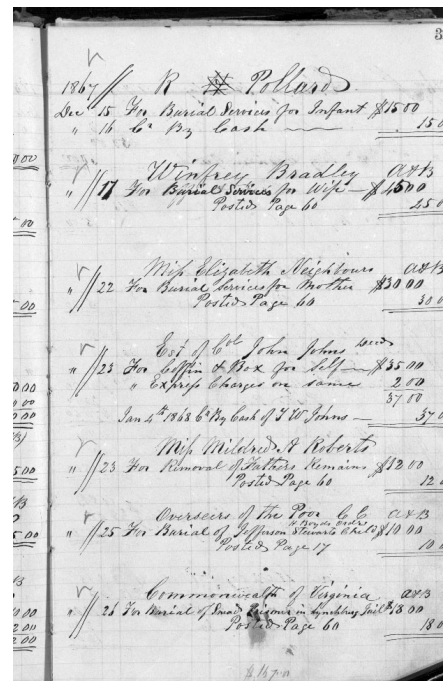 3
1867 // R Pollard
Dec 15 For Burial Services for Infant $15 00
" 16 Cr By Cash 15 0
Winfrey Bradley A&B
" // 17 For Burial Services for Wife $45 00
Posted Page 60 45 0
Miss Elizabeth Neighbours A&B
" // 22 For Burial Services for Mother $30 00
Posted Page 60 30 0
Est of Col John Johns decd
" // 23 For Coffin & Box for Self $35 00
" Express Charges on same 2 00
37 00
Jan 4th 1868 Cr By Cash of T W Johns 37 0
Miss Mildred A Roberts
" // 23 For Removal of Fathers Remains $12 00
Posted Page 60 12 0
Overseers of the Poor C C A&B
Boyds Order
" // 25 For Burial of Jefferson Stewarts Child $10 00
Posted Page 17 10 0
Commonwealth of Virginia A&B
" // 26 For Burial of Prisoner in Lynchburg Jail $18 00
Posted Page 60 18 0